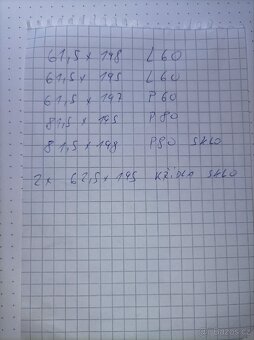 61,5 x 198 L60
61,5 x 195 L60
61,5 x 197 P60
81,5 x 195 P80
81,5 x 198 P80 SKLO
2x 62,5 x 195 KŘÍDLO SKLO